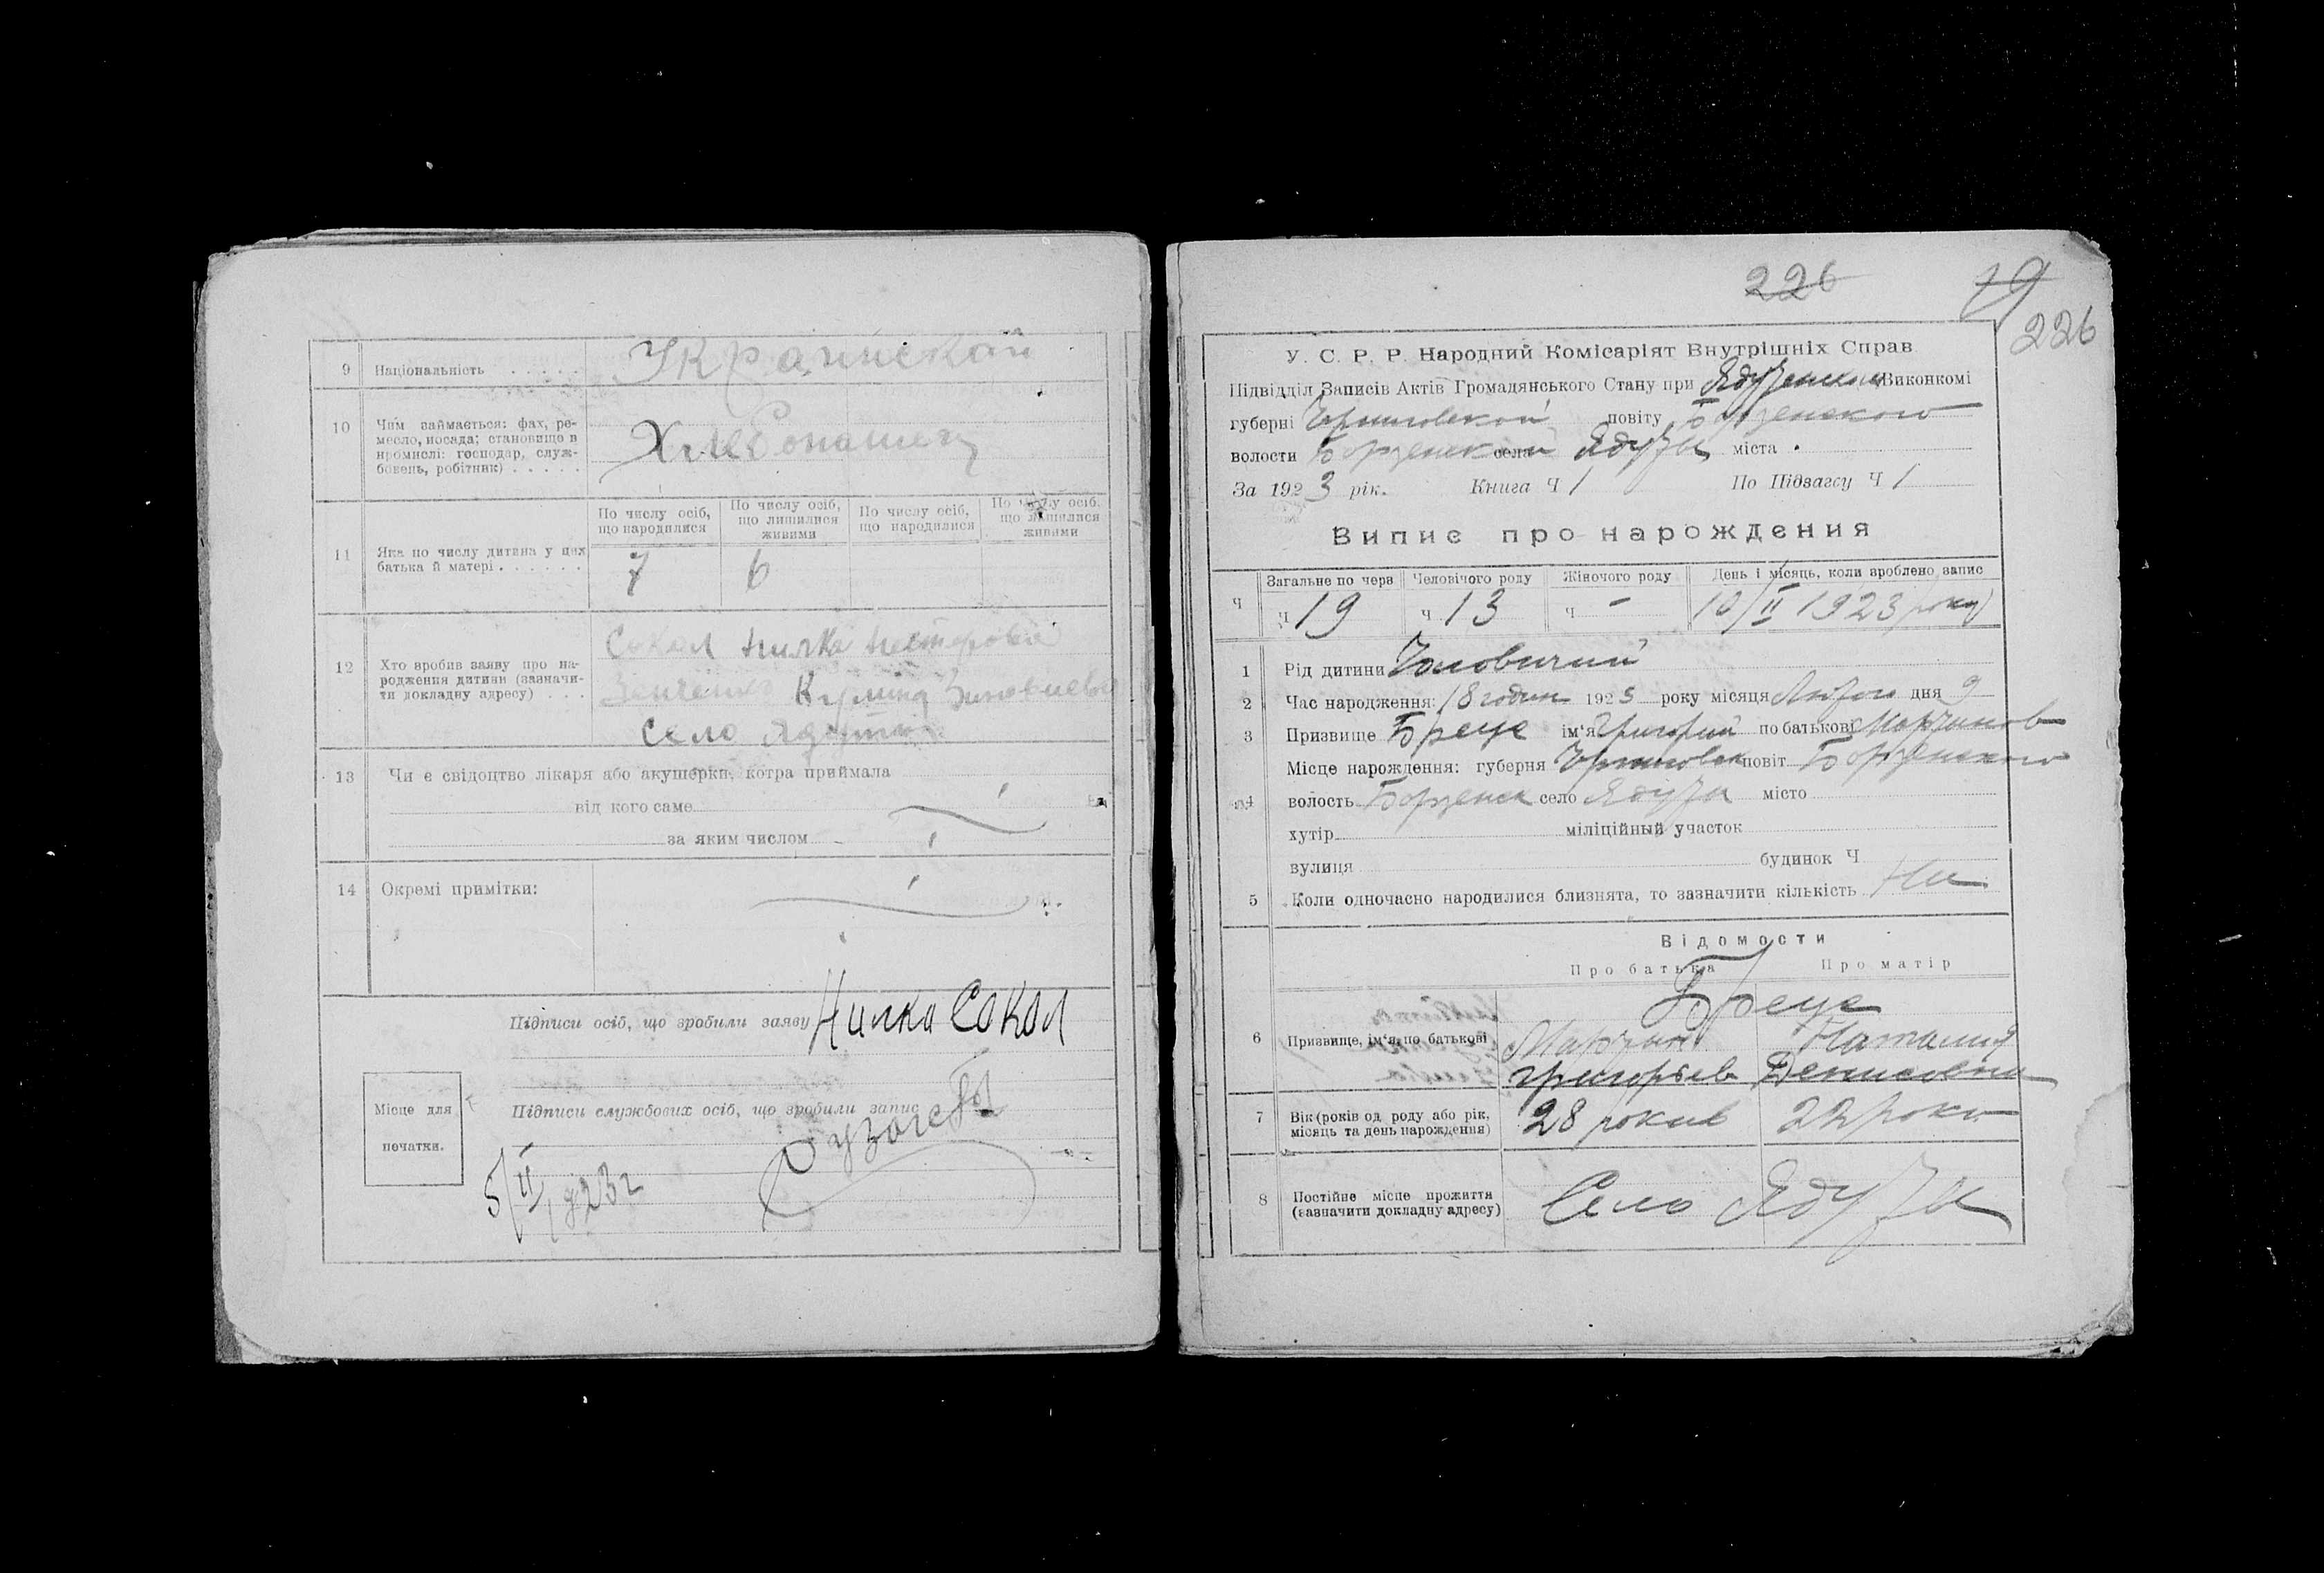 9 Національність . . . . . Украинской
10 Чим займається: фах, ре-
месло, посада; становищо в
промислі: господар, служ-
бовець, робітник) . . . . . Хлебопашец
По числу осіб, що народилися
По числу осіб, що лишилися живими
По числу осіб, що народилися
По числу осіб, що лишилися живими
11 Яка по числу дитина у цих
батька й матері . . . . . . 7 6
12 Хто зробив заяву про на-
родження дитини (зазначи-
ти докладну адресу) . . .
Сокол Нилка Нестерова
Килина Зиновиева
Село Ядути
13 Чи є свідоцтво лікаря або акушерки, котра приймала
від кого саме
за яким числом
14 Окремі примітки:
Підписи осіб, що зробили заяву Нилка Сокол
Місце для
печатки.
Підписи службових осіб, що зробили запис
5/II 1923 г
226 19
226
У. С. Р. Р. Народний Комісаріят Внутрішніх Справ
Підвідділ Записів Актів Громадянського Стану при Виконкомі
губерні Черниговской повіту Борзенского
волости Борзенской села Ядуты міста
За 1923 рік. Книга Ч 1 По Підзагсу Ч 1
Випис про нарождения
Ч Загальне по черв Человічого роду Жіночого роду День і місяць, коли зроблено запис
ч 19 ч 13 ч – 10/II 1923 року
1 Рід дитини Чоловичий
2 Час народження: 18 годин 1923 року місяця Лютого дня 9
3 Призвище Бреус ім'я Григорий по батькові Мартинов
4 Місце нарождення: губерня Черниговск повіт Борзенского
волость Борзенск село Ядуты місто
хутір міліційный участок
вулиця будинок Ч
5 Коли одночасно народилися близнята, то зазначити кількість Ни
Відомости
Про батька Про матір
Бреус
6 Призвище, ім'я, по батькові Мартин Наталия
Григорьев Денисовна
7 Вік (років од роду або рік,
місяць та день нарождення) 28 рокив 22 роки
8 Постійне місце прожиття
(зазначити докладну адресу) Село Ядуты